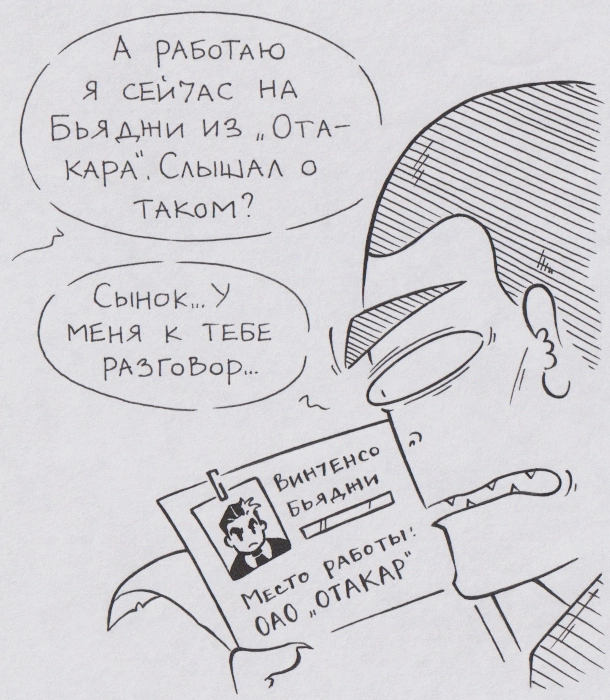 А РАБОТАЮ
Я СЕЙЧАС НА
БЬЯДЖИ ИЗ „ОТА-
КАРА". СЛЫШАЛ О
ТАКОМ?
СЫНОК... У
МЕНЯ К ТЕБЕ
РАЗГОВОР...
ВИНЧЕНСО
БЬЯДЖИ
МЕСТО РАБОТЫ:
ОАО „ОТАКАР"